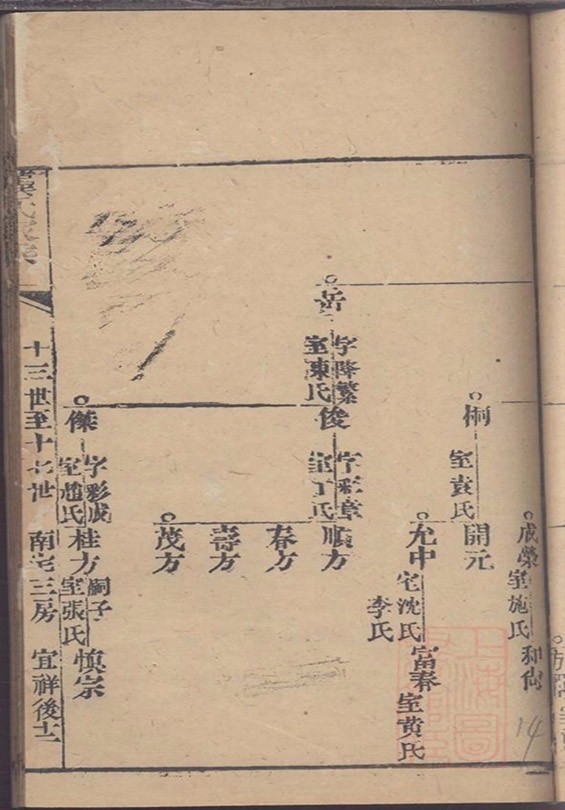 成榮
室施氏
和尚
桐
室袁氏
開元
允中
宅沈氏
李氏
富春
室黄氏
岳
字降繁
室陳氏
俊
字彩章
室丁氏
順方
春方
壽方
茂方
傑
字彩成
室趙氏
桂方
嗣子
室張氏
慎宗
十三世至十七世
南宅三房
宜祥後十二
14